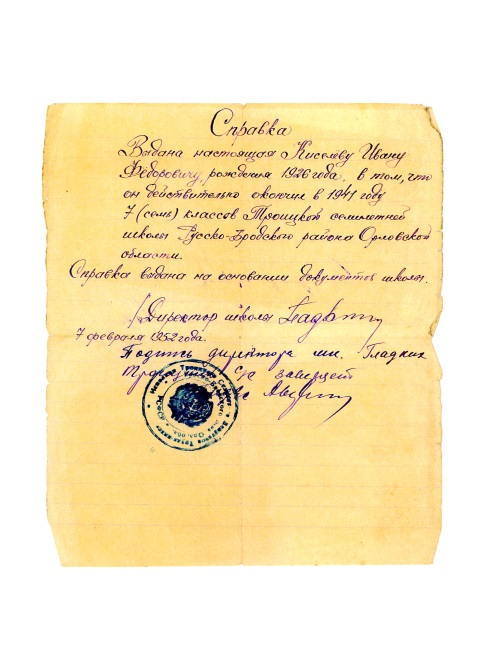 Справка
Выдана настоящая Киселёву Ивану
Фёдоровичу, рождения 1926 года в том, что
он действительно окончил в 1941 году
7 (семь) классов Троицкой семилетней
школы Русско-Бродского района Орловской
области.
Справка выдана на основании документов школы.
Директор школы
7 февраля 1952 года.
Подпись директора шк. Гладких
с/с заверяет